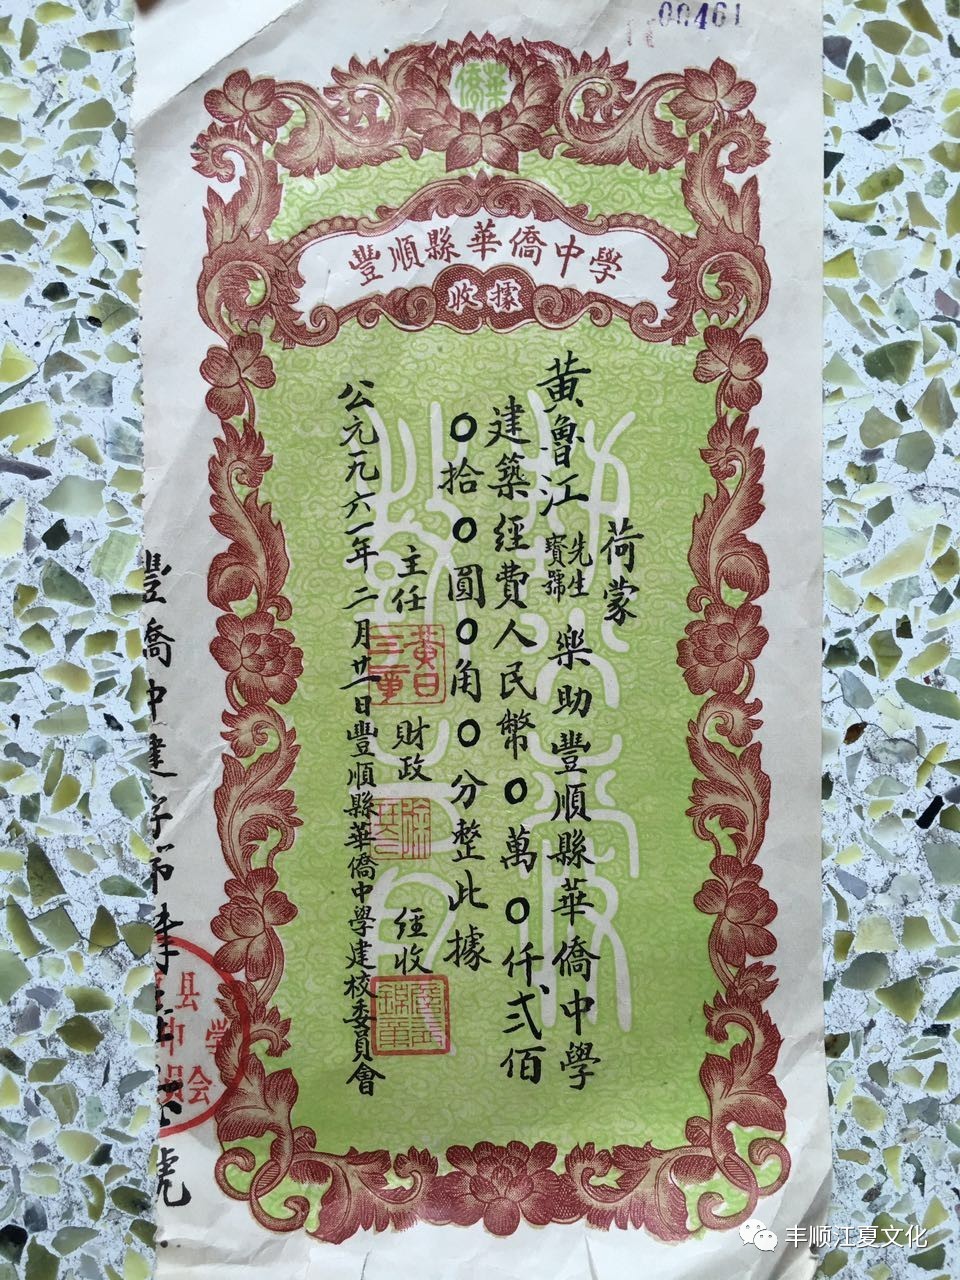 00461
華僑
豐順縣華僑中學
收據
荷蒙
黃魯江 先生 寶號 樂助豐順縣華僑中學
建築經費人民幣0萬0仟弍佰
0拾0圓0角0分整此據
主任 財政 經收
公元一九六一年二月廿一日豐順縣華僑中學建校委員會
豐僑中建字第
號
县
中 學
員会
丰顺江夏文化